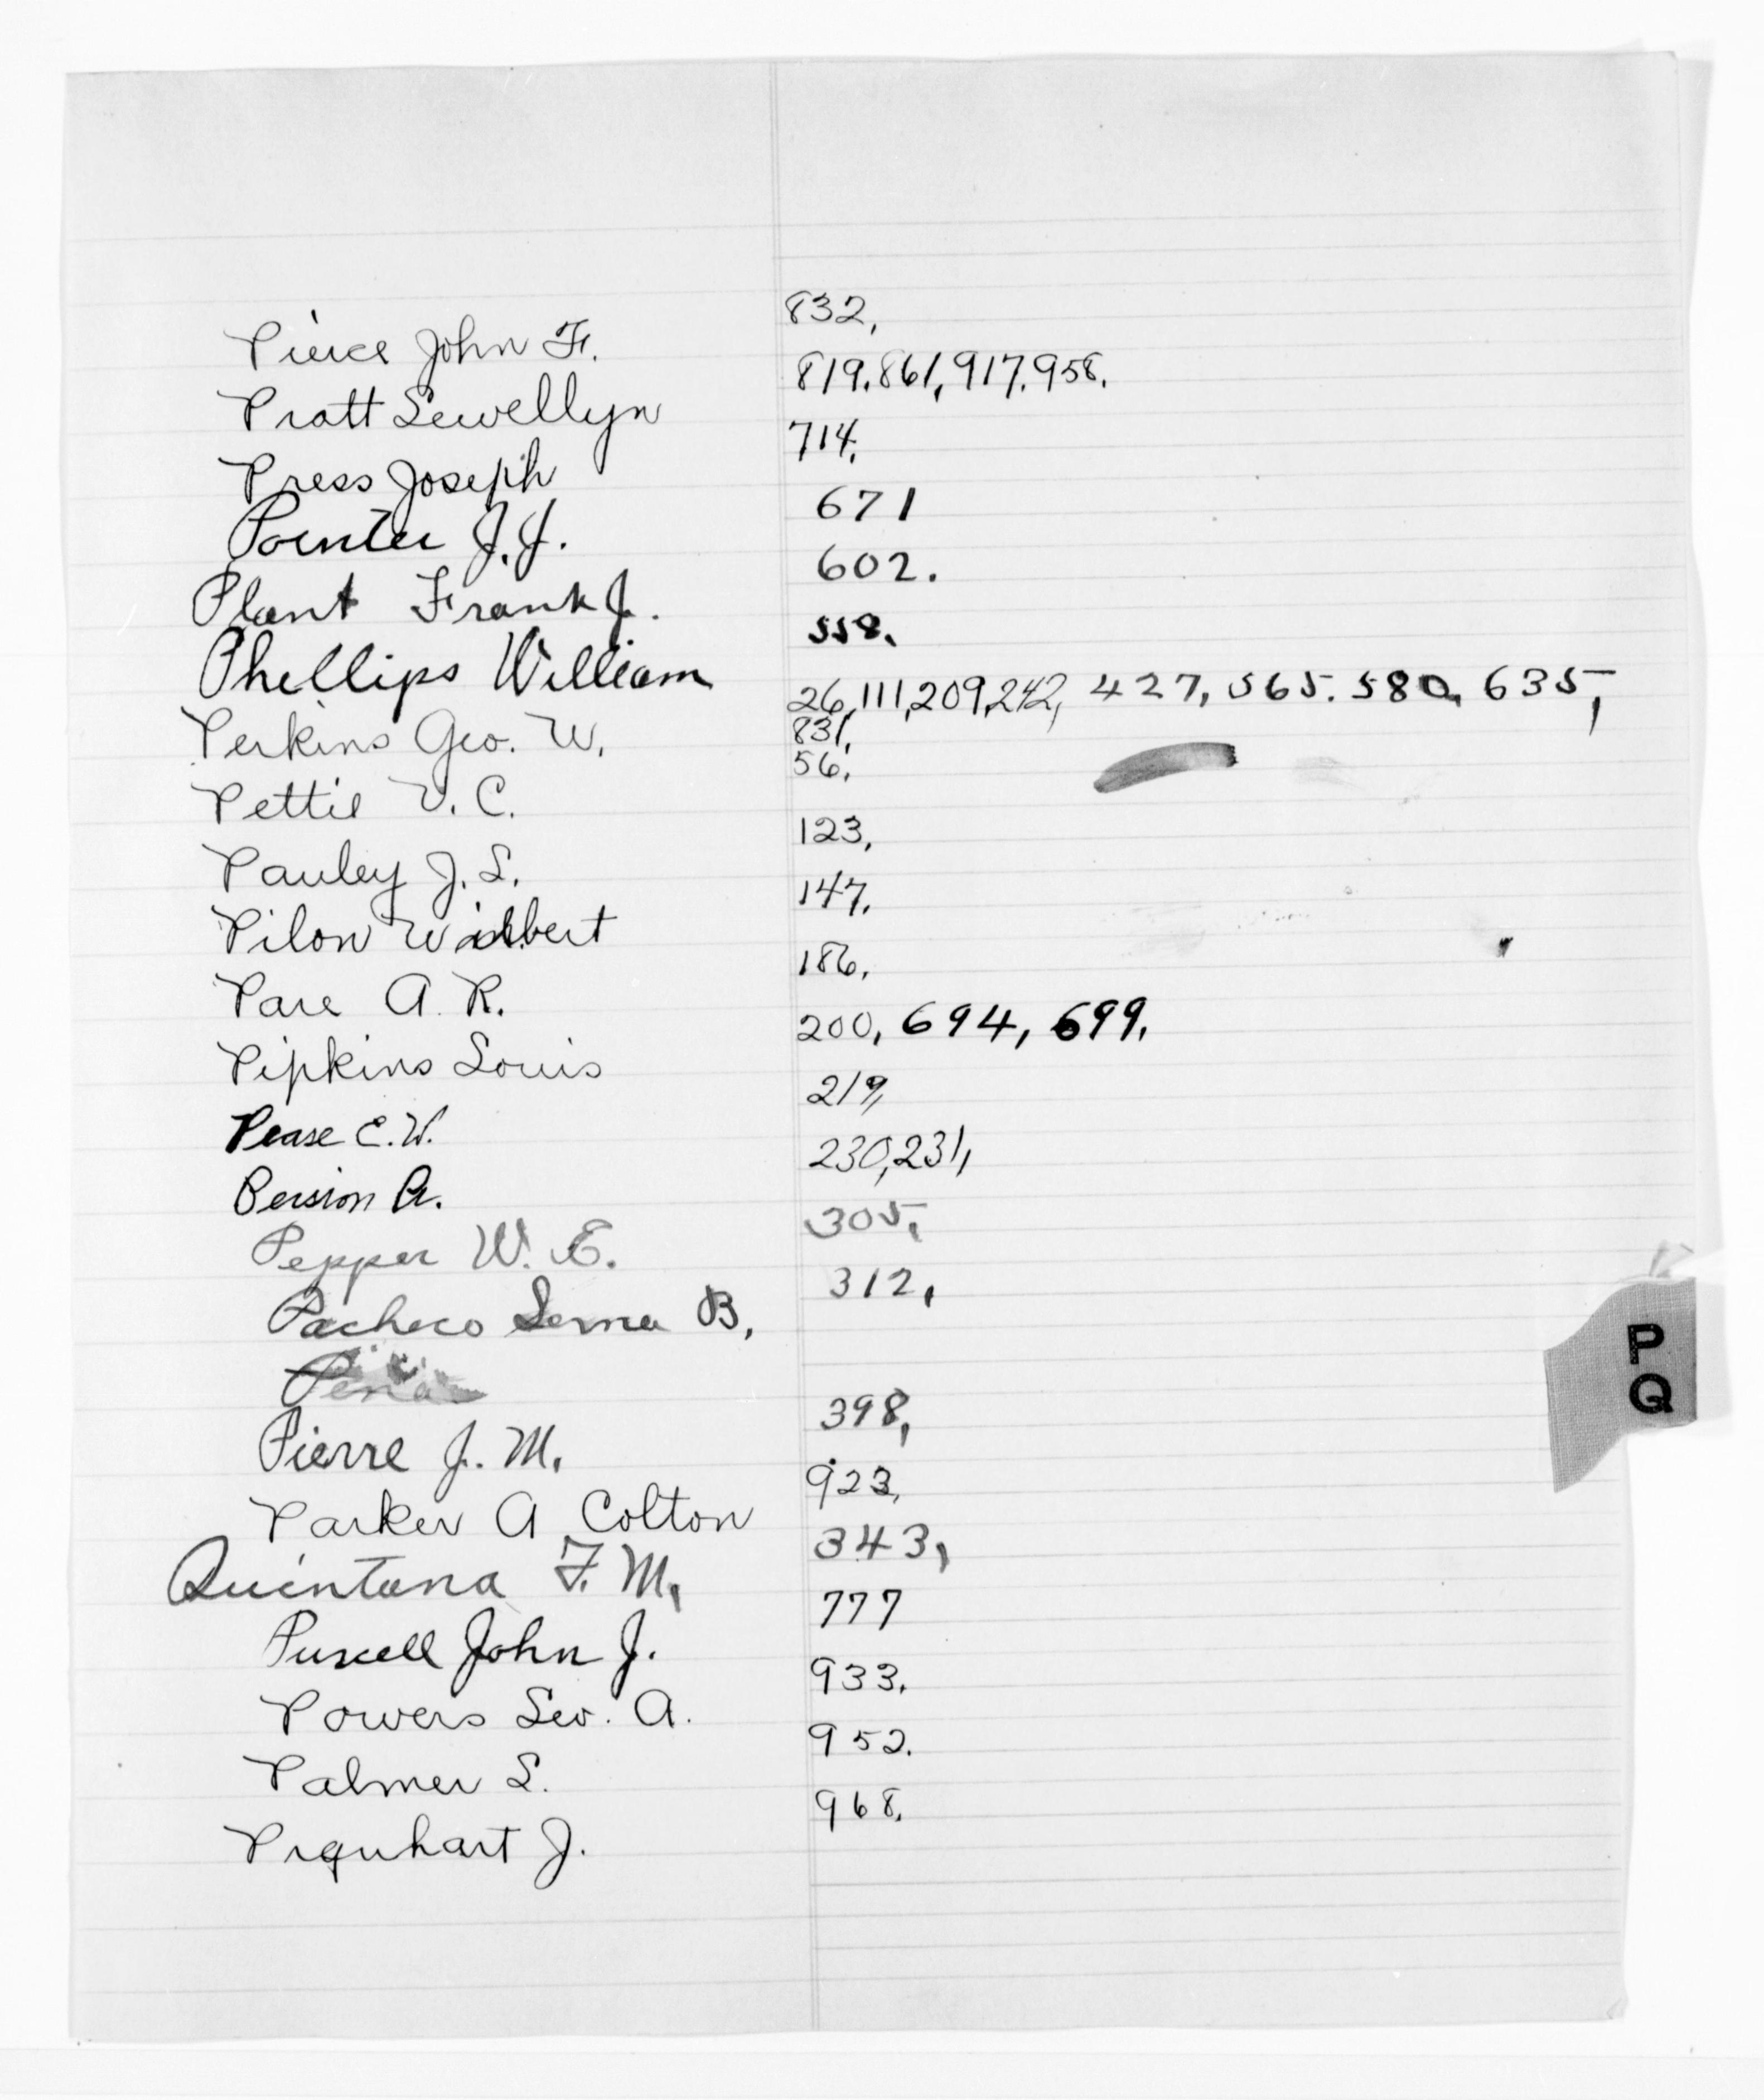 Pierce John F. 832,
Pratt Lewellyn 819. 861, 917. 958.
Press Joseph 714.
Pointer J. J. 671
Plant Frank J. 602.
Phellips William 558.
Perkins Geo. W. 26, 111, 209, 242, 427, 565. 580, 635,
831,
Pettie V. C. 56,
Pauley J. L. 123,
Pilon 147,
Pare A. R. 186,
Pipkins Louis 200, 694, 699.
Pease E. W. 219,
Persion A. 230, 231,
Pepper W. E. 305,
Pacheco B, 312,
Pena
Pierre J. M. 398,
Parker A Colton 923,
Quintana F. M. 343,
Purcell John J. 777
Powers A. 933.
Palmer L. 952.
J. 968.
P
Q